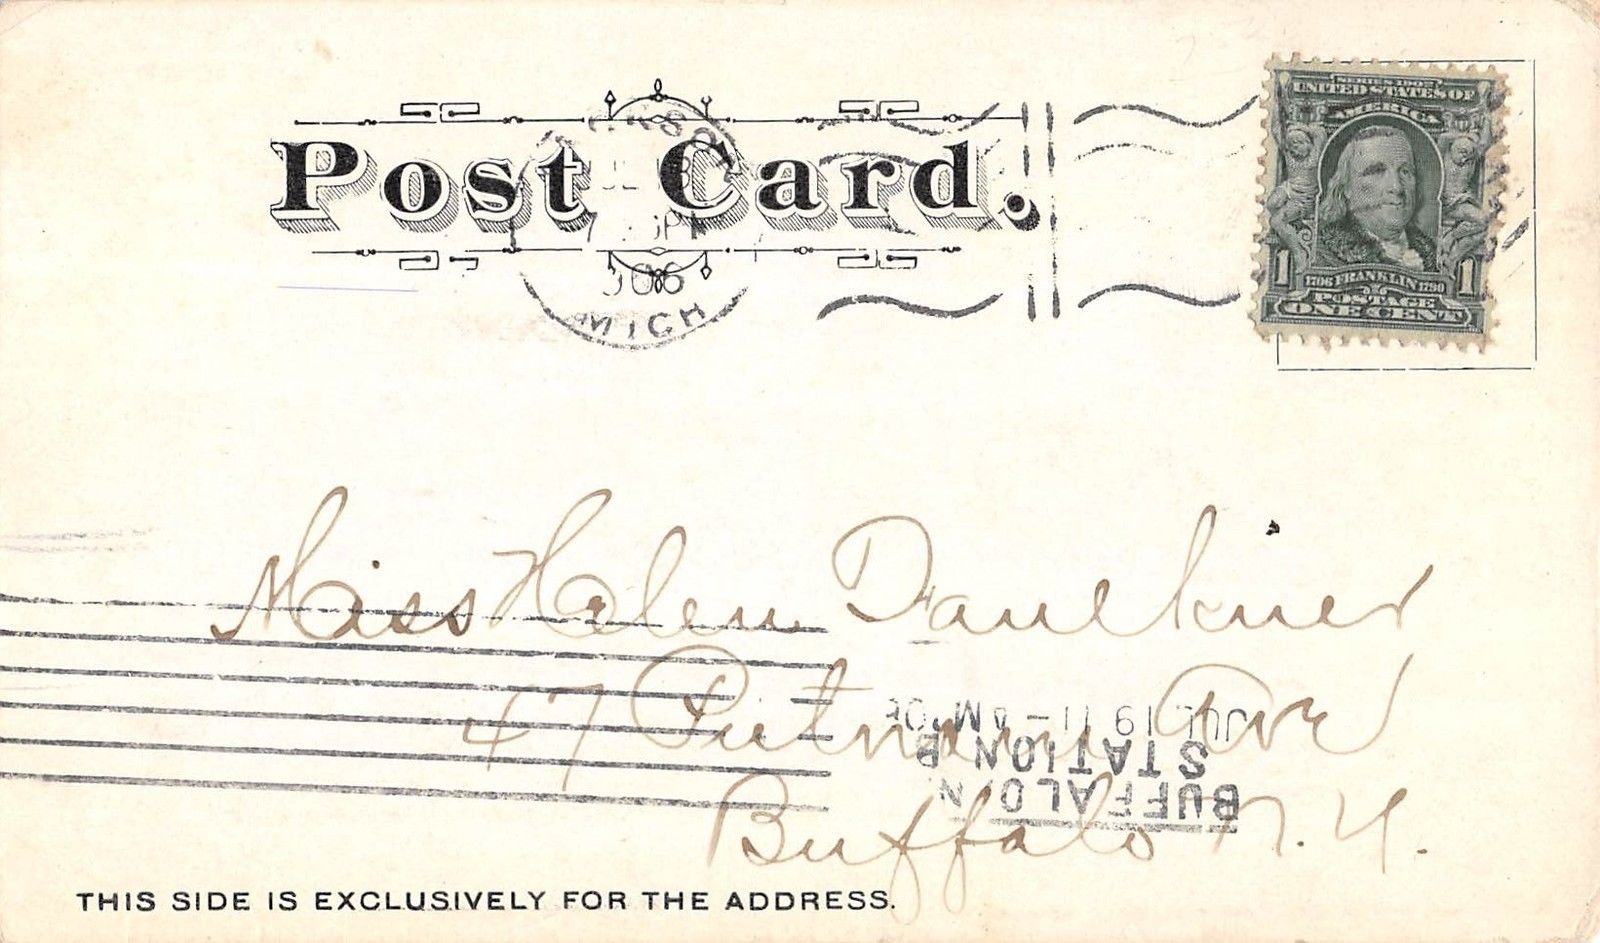 Post Card.
SERIES 1902
UNITED STATES OF
AMERICA
1 1706 FRANKLIN 1790 1
POSTAGE
ONE CENT
MICH
Miss Helen Faulkner
47 Putnam Ave
Buffalo N. Y.
BUFFALO, N
STATION B
JUL 19 11-AM
THIS SIDE IS EXCLUSIVELY FOR THE ADDRESS.